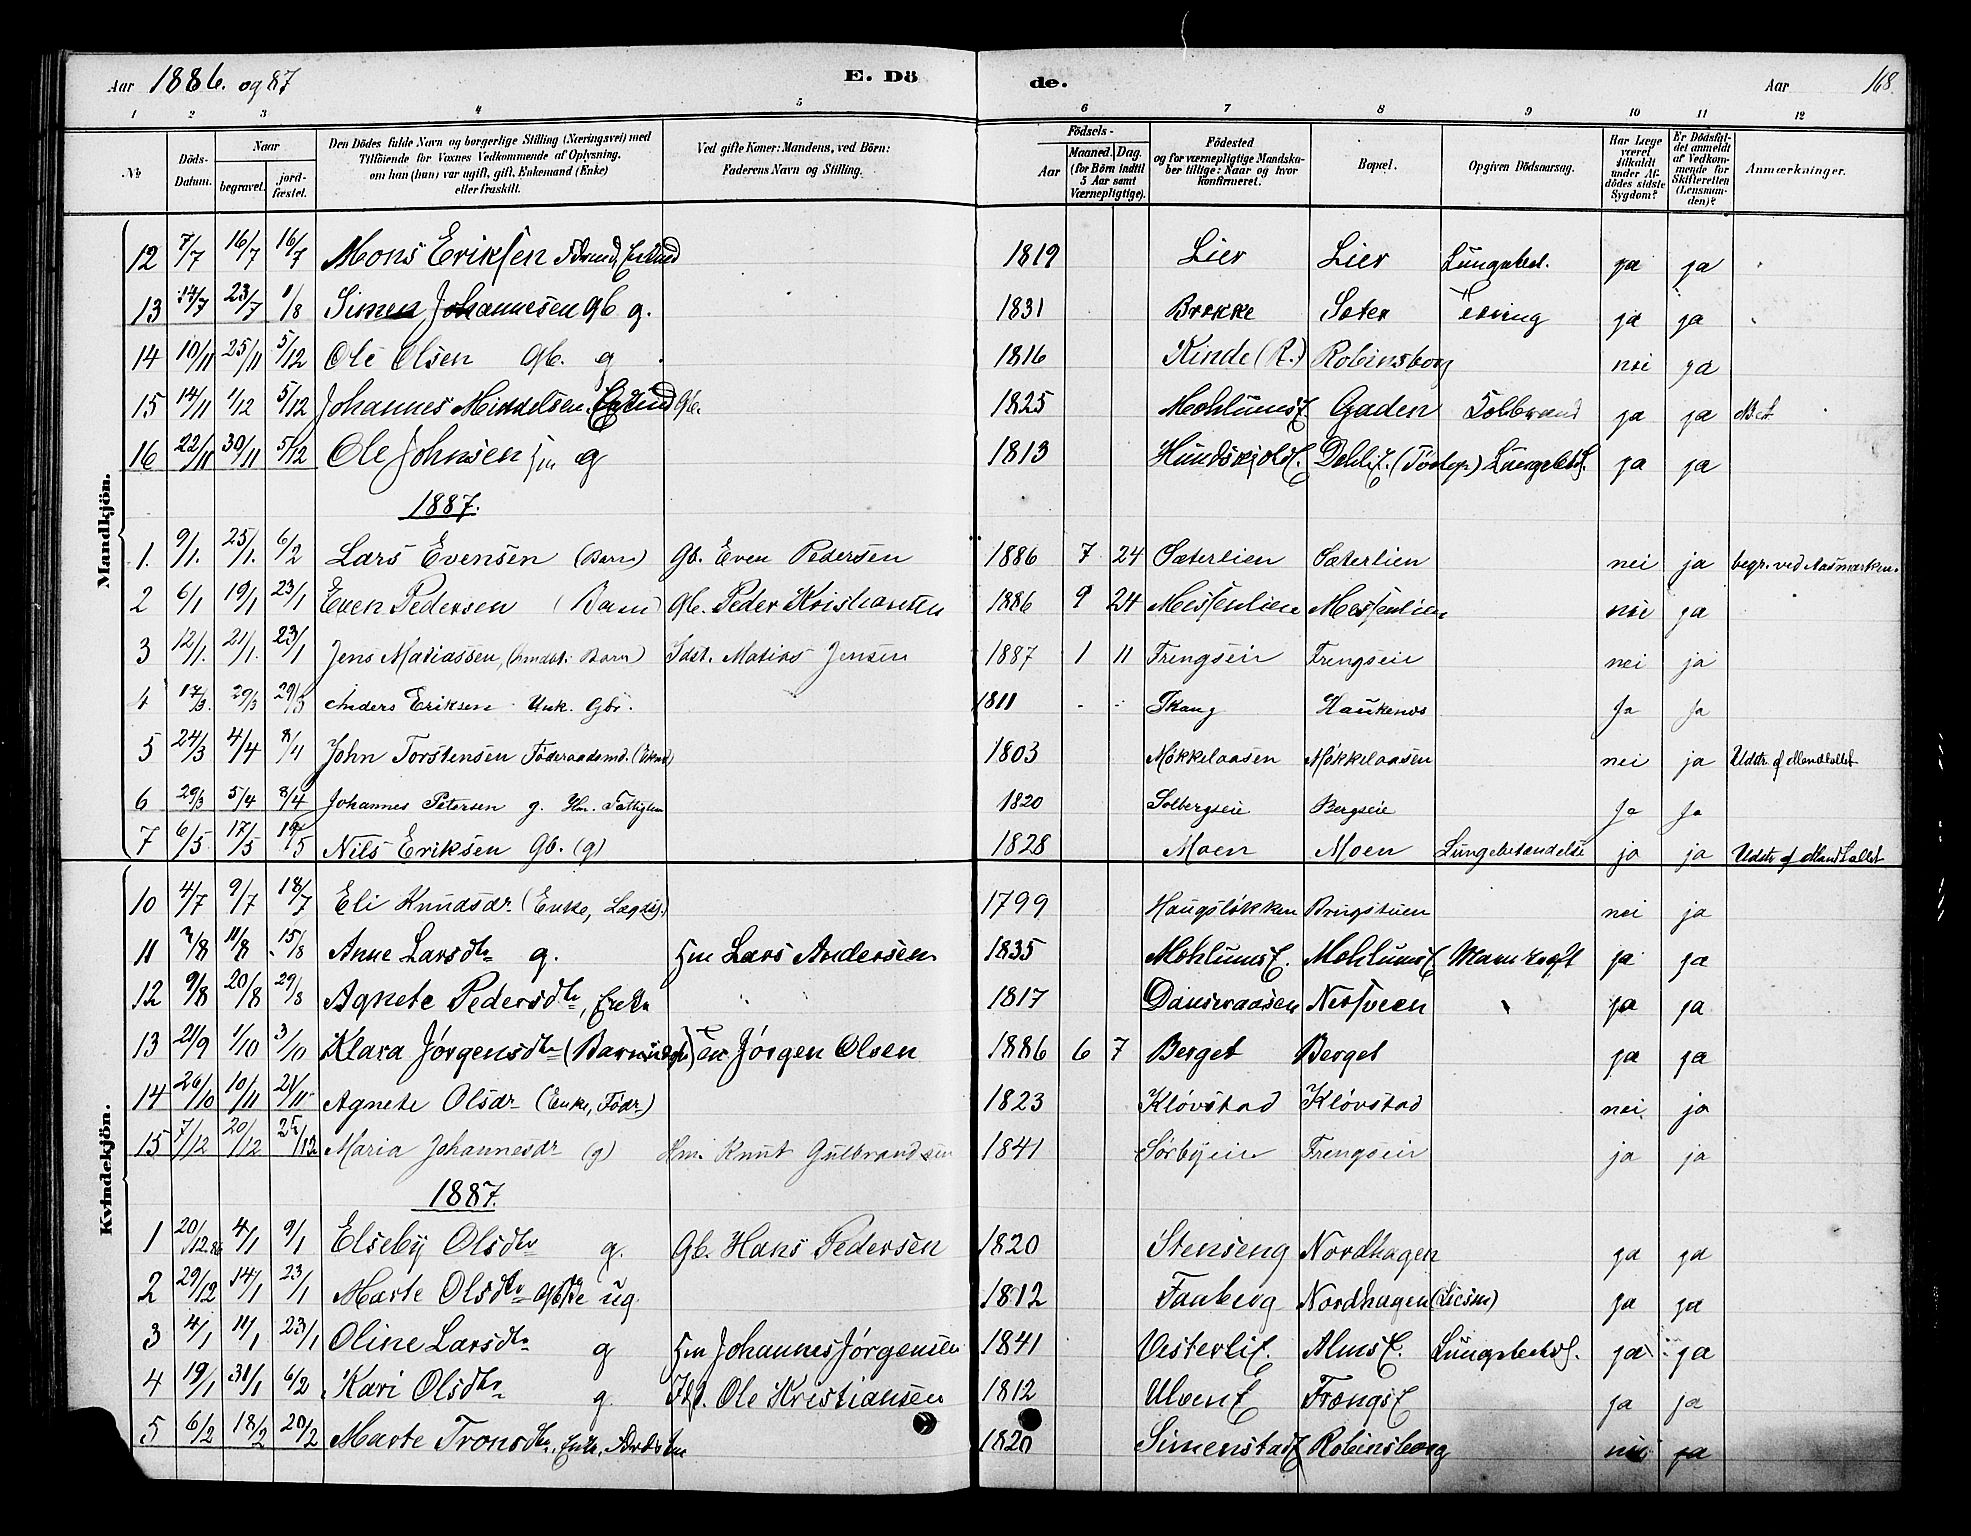 Aar 1886. og 87 E. Dö de. Aar 168.
1 2 3 4 5 6 7 8 9 10 11 12
No Döds-Datum. Naar begravet. jord-fæstet. Den Dödes fulde Navn og borgerlige Stilling (Næringsvei) med Tilföiende for Voxnes Vedkommende af Oplysning, om han (hun) var ugift, gift, Enkemand (Enke) eller fraskilt. Ved gifte Koner: Mandens, ved Börn: Faderens Navn og Stilling. Födsels- Aar Maaned. Dag. (for Börn indtil 5 Aar samt Værnepligtige). Födested og for værnepligtige Mandskaber tillige: Naar og hvor konfirmeret. Bopæl. Opgiven Dödsaarsag. Har Læge været tilkaldt under Afdödes sidste Sygdom? Er Dödsfaldet anmeldt af Vedkommende for Skifteretten (Lensmanden)? Anmærkninger.
Mandkjön.
12 7/7 16/7 16/7 Mons Eriksen 1819 Lier Lier Lungebet. ja ja
13 14/7 23/7 1/8 Simen Johannesen Gb. g. 1831 Brekke Sæter Tæring ja ja
14 10/11 25/11 5/12 Ole Olsen Gb. g 1816 Kinde (R.) Robinsborg nei ja
15 14/11 1/12 5/12 Johannes Mikkelsen Enkmd Gb. 1825 Mohlumsf. Gaden Koldbrand ja ja
16 22/11 30/11 5/12 Ole Johnsen Hm g 1813 Hundskjolsf. Dehlif. Lungebet. ja ja
1887.
1. 9/1. 25/1. 6/2 Lars Evensen (Barn) Gb. Even Pedersen 1886 7 24 Sæterlien Sæterlien nei ja begr. ved Aasmarken.
2 6/1 19/1 23/1 Even Pedersen (Barn) Gb. Peder Kristiansen 1886 9 24 Messenlien Messenlien nei ja
3 12/1. 21/1. 23/1 Jens Matiassen, (Inds. Barn) Idst. Matias Jensen 1887 1 11 Frengseie Frengseie nei ja
4 17/3. 29/3 29/3 Anders Eriksen Enk. Gbr. 1811 - - Skang Haukenes Ja Ja
5 24/3 4/4 8/4 John Torstensen Föderaadsmd. (Ekmd) 1803 Møkkelaasen Møkkelaasen nei ja Udstr. af Mandtallet
6 29/3 5/4 8/4 Johannes Petersen g. Hm. Fattiglem 1820 Solbergseie Bergseie Ja Ja
7 6/5 17/5 19/5 Nils Eriksen Gb. (g) 1828 Moen Moen Lungebetændelse ja ja Udstr. af Mandtallet
Kvindekjön.
10 4/7 9/7 18/7 Eli Knudsdr. (Enke, Lægdsl.) 1799 Haugsløkken Brugstuen nei ja
11 3/8 11/8 15/8 Anne Larsdtr g. Hm Lars Andersen 1835 Mohlumsf. Mohlumsf. ja ja
12 9/8 20/8 29/8 Agnete Pedersdtr, Enke " " 1817 Danseraasen Nersveen ja ja
13 21/9 1/10 3/10 Klara Jørgensdtr (Barn) Jørgen Olsen 1886 6 7 Berget Berget ja ja
14 26/10 10/11 21/11 Agnete Olsdr (Enke, Födr.) 1823 Kløvstad Kløvstad nei ja
15 7/12 20/12 25/12 Maria Johannesdr (g) Hm. Knut Gulbrandsen 1841 Sørbyeie Frengseie ja ja
1887.
1 20/12.86 4/1 9/1 Elseby Olsdtr g. Gb. Hans Pedersen 1820 Stenseng Nordhagen ja ja
2 29/12 14/1 23/1 Marte Olsdtr ug. 1812 Faaberg Nordhagen ja ja
3 4/1 11/1 23/1 Oline Larsdtr g Hm Johannes Jørgensen 1841 Vesterlif. Almsf. Lungebet. ja ja
4 19/1 31/1 6/2 Kari Olsdtr g. Ole Kristiansen 1812 Ulvenf. Frengsf. ja ja
5 6/2 18/2 20/2 Marte Tronsdtr, Enke, 1820 Simenstadf. Robinsborg nei ja